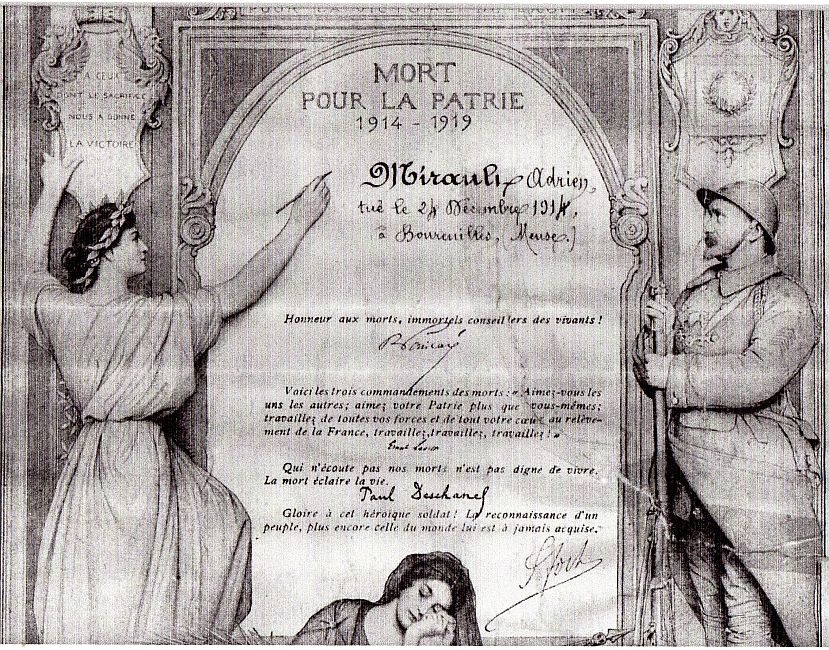 POUR LA VICTOIRE
A CEUX
DONT LE SACRIFICE
NOUS A DONNÉ
LA VICTOIRE
MORT
POUR LA PATRIE
1914 - 1919
Adrien,
tué le 24 Décembre 1914,
à Boureuilles, (Meuse.)
Honneur aux morts, immortels conseillers des vivants !
R Poincaré
Voici les trois commandements des morts : « Aimez-vous les
uns les autres ; aimez votre Patrie plus que vous-mêmes ;
travaillez de toutes vos forces et de tout votre cœur au relève-
ment de la France, travaillez, travaillez, travaillez ! »
Ernest Lavisse
Qui n'écoute pas nos morts n'est pas digne de vivre.
La mort éclaire la vie.
Paul Deschanel
Gloire à cet héroïque soldat ! La reconnaissance d'un
peuple, plus encore celle du monde lui est à jamais acquise.
Foch